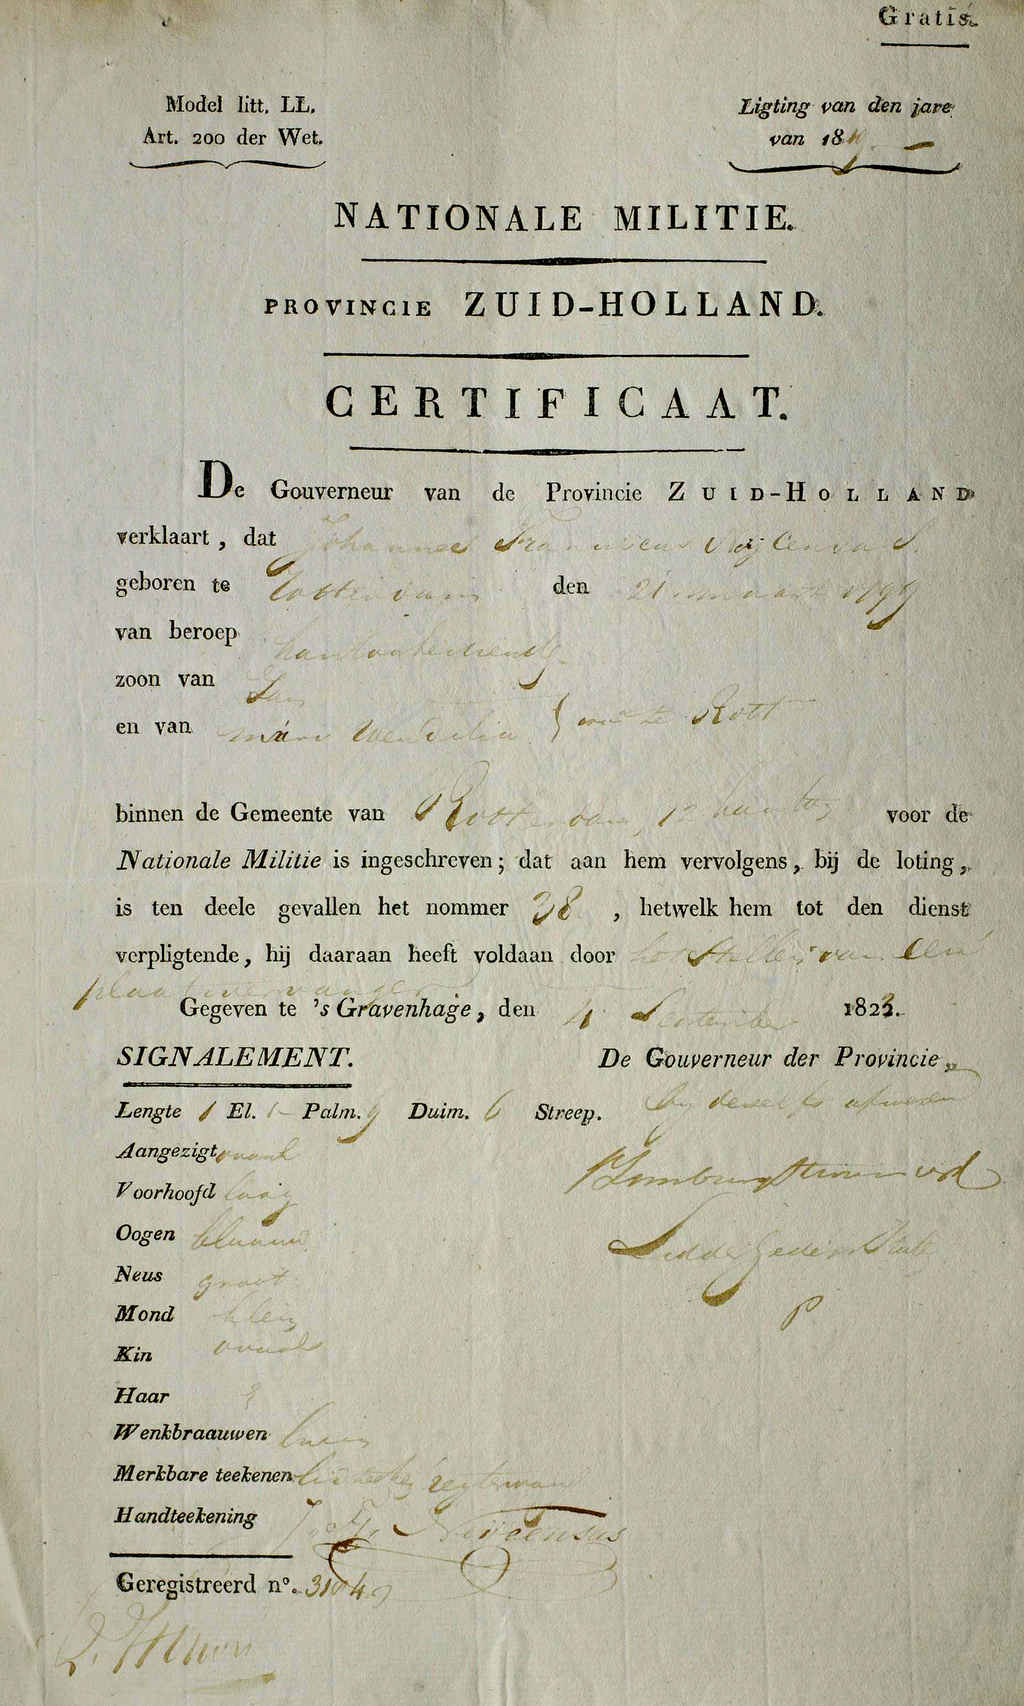 Gratis.
Model litt. LL.
Art. 200 der Wet.
Ligting van den jare
van 18
NATIONALE MILITIE.
PROVINCIE ZUID-HOLLAND.
CERTIFICAAT.
De Gouverneur van de Provincie ZUID-HOLLAND
verklaart, dat Johannes Franciscus
geboren te Rotterdam den 21 maart 1799
van beroep kantoorbediende
zoon van Jan
en van te Rott
binnen de Gemeente van Rotterdam, 1e kanton voor de
Nationale Militie is ingeschreven; dat aan hem vervolgens, bij de loting,
is ten deele gevallen het nommer 38, hetwelk hem tot den dienst
verpligtende, hij daaraan heeft voldaan door het stellen van een
plaatsvervanger
Gegeven te 's Gravenhage, den 4 September 1823.
SIGNALEMENT.
De Gouverneur der Provincie,
Lengte 1 El. 6 Palm. 9 Duim. 6 Streep.
bij deszelfs afwezen
Aangezigt ovaal
Voorhoofd laag
Oogen blaauw
Neus groot
Mond klein
Kin ovaal
Haar
Wenkbraauwen bruin
Merkbare teekenen
Handteekening
Geregistreerd n°. 3184